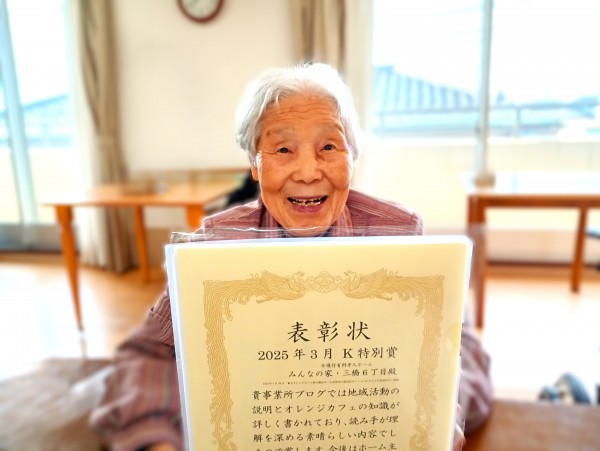 表彰状
2025年3月 K特別賞
介護付有料老人ホーム
みんなの家・三橋6丁目殿
貴事業所ブログでは地域活動の
説明とオレンジカフェの知識が
詳しく書かれており、読み手が理
解を深める素晴らしい内容でし